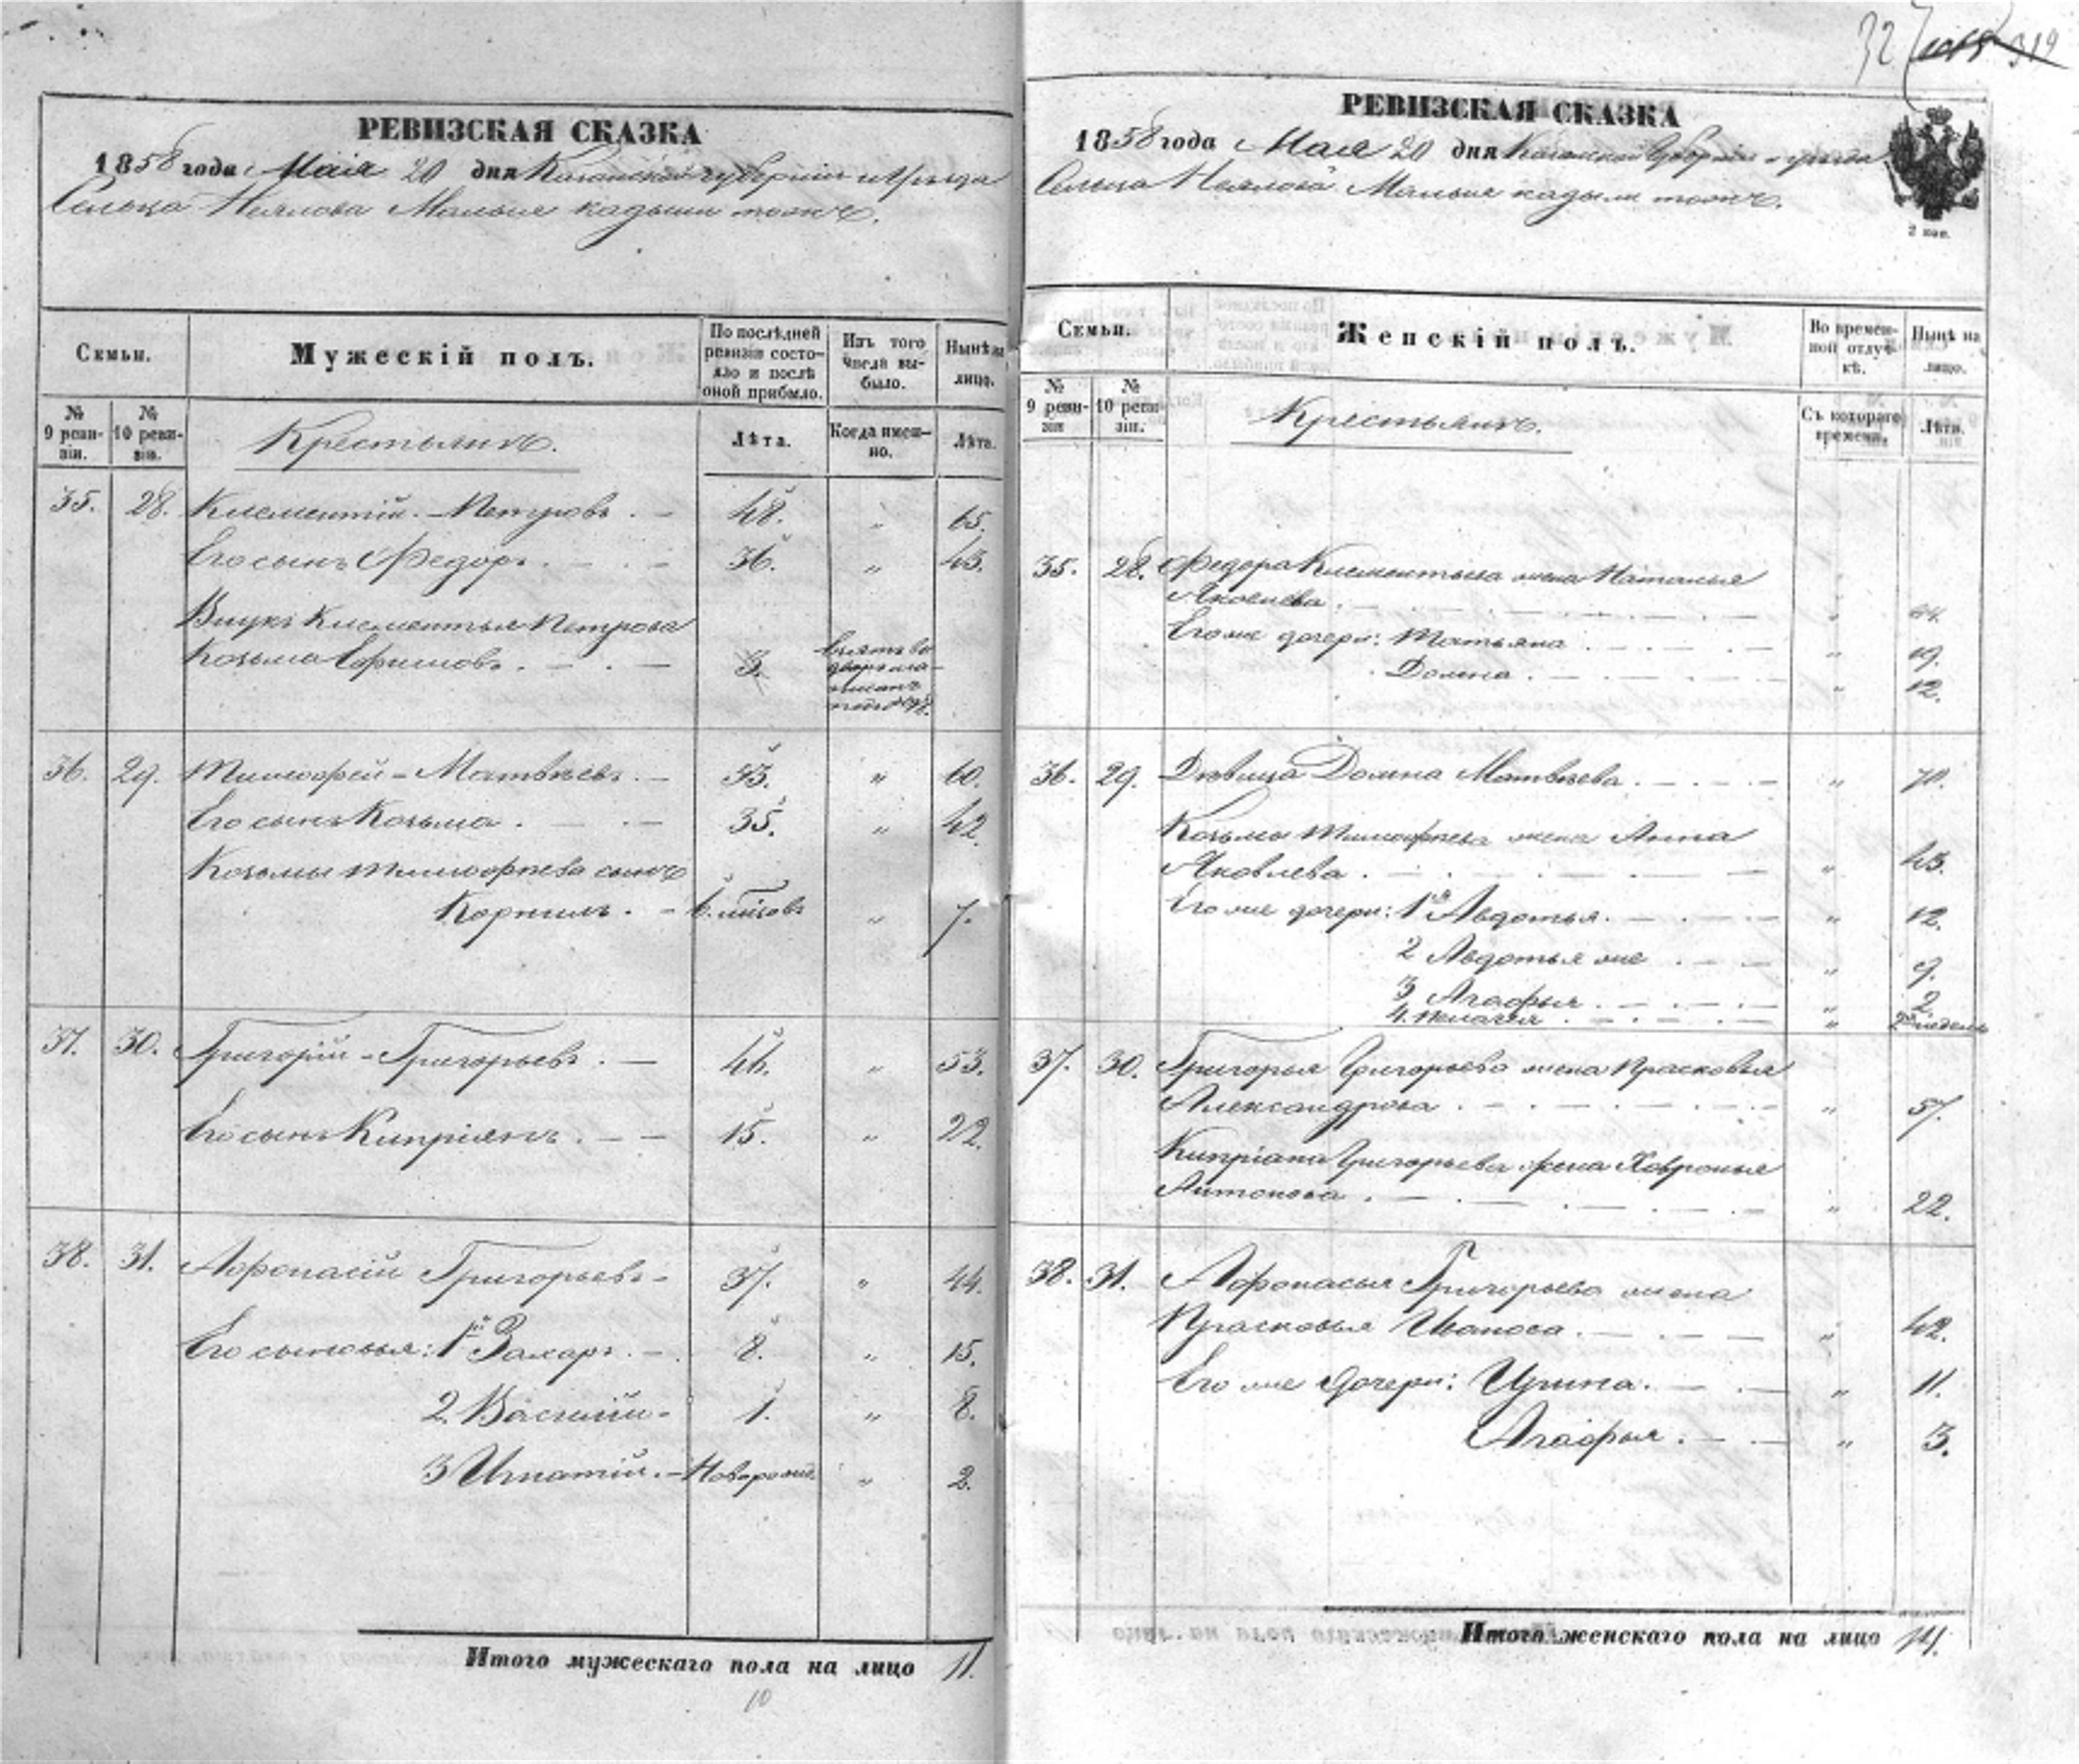 РЕВИЗСКАЯ СКАЗКА
1858 года Мая 20 дня Казанской губерніи и уѣзда
Сельца Малые Кадыши тожъ.
Семьи.
Мужескій полъ.
По послѣдней ревизіи состояло и послѣ оной прибыло.
Изъ того числа выбыло.
Нынѣ на лицо.
№ 9 ревизіи.
№ 10 ревизіи.
Крестьянъ.
Лѣта.
Когда именно.
Лѣта.
35. 28. Клементій Петровъ. 48. „ 65.
Его сынъ Федоръ. 36. „ 43.
Внукъ Клементья Петрова
Козьма Ефимовъ. 3. Взятъ во дворъ
36. 29. Тимофей Матвѣевъ. 53. „ 60.
Его сынъ Козьма. 35. „ 42.
Козьмы Тимофѣева сынъ
Корнилъ. 6. мѣсяцовъ „ 7.
37. 30. Григорій Григорьевъ. 46. „ 53.
Его сынъ Кипріянъ. 15. „ 22.
38. 31. Афонасій Григорьевъ 37. „ 44.
Его сыновья: 1й Захаръ. 8. „ 15.
2. Василій 1. „ 8.
3 Игнатій. Новорожд. „ 2.
Итого мужескаго пола на лицо 11.
10
327 319
РЕВИЗСКАЯ СКАЗКА
1858 года Мая 20 дня Казанской Губерніи и уѣзда
Сельца Малые Кадыши тожъ.
2 коп.
Семьи.
Женскій полъ.
Во временной отлучкѣ.
Нынѣ на лицо.
№ 9 ревизіи
№ 10 ревизіи.
Крестьянъ.
Съ котораго времени.
Лѣта.
35. 28. Федора Клементьева жена Наталья
Яковлева. „ 44.
Его же дочери: Татьяна „ 19.
Домна. „ 12.
36. 29. Дѣвица Домна Матвѣева. „ 70.
Козьмы Тимофѣева жена Анна
Яковлева. „ 43.
Его же дочери: 1я Авдотья. „ 12.
2 Авдотья же „ 9.
3 Агафья. „ 2.
4. Пелагея. „ недель
37. 30. Григорья Григорьева жена Прасковья
Александрова. „ 57.
Кипріана Григорьева жена Хавронья
Антонова. „ 22.
38. 31. Афонасья Григорьева жена
Прасковья Иванова. „ 42.
Его же дочери: Ирина. „ 11.
Агафья. „ 3.
Итого женскаго пола на лицо 14.